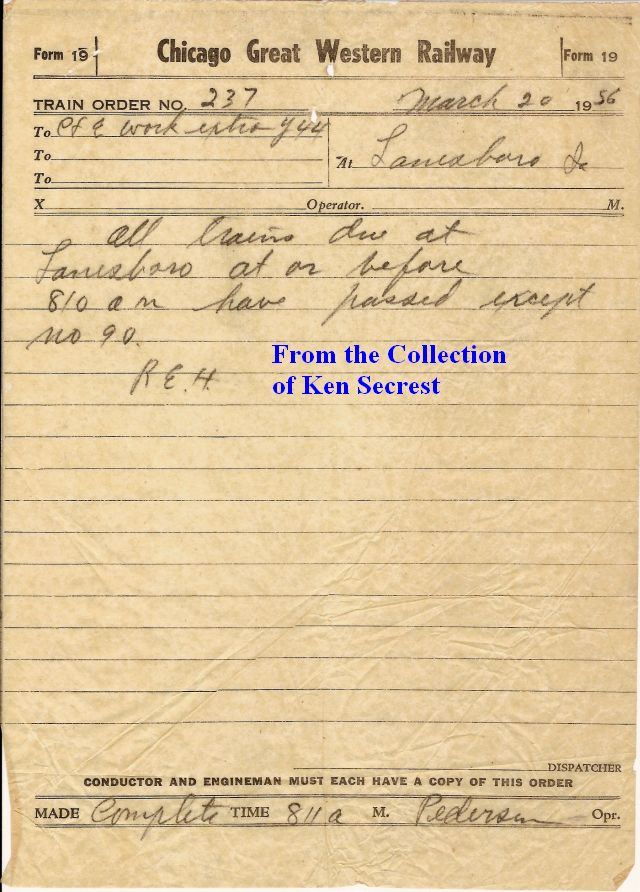 Form 19 Chicago Great Western Railway Form 19
TRAIN ORDER NO. 237 March 20 1956
To C&E work extra 944
To
To
At Lanesboro Ia
X Operator. M.
All trains due at
Lanesboro at or before
810 a m have passed except
no 90.
R E. H.
From the Collection
of Ken Secrest
DISPATCHER
CONDUCTOR AND ENGINEMAN MUST EACH HAVE A COPY OF THIS ORDER
MADE Complete TIME 811 a M. Pedersen Opr.